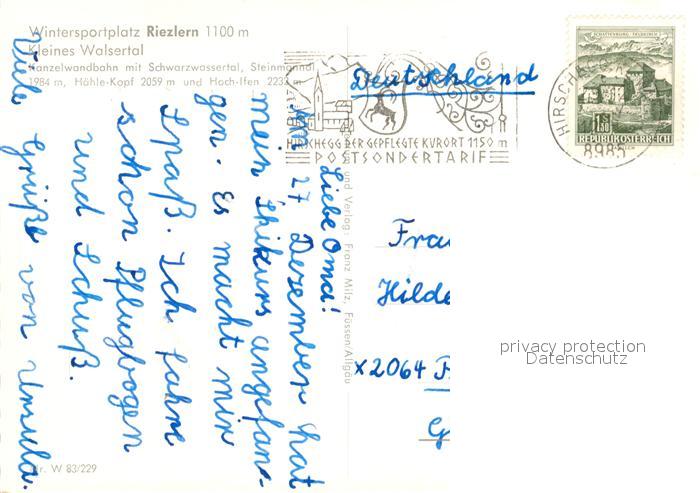 Wintersportplatz Riezlern 1100 m
Kleines Walsertal
Kanzelwandbahn mit Schwarzwassertal, Steinmandl
1984 m, Höhle-Kopf 2059 m und Hoch-Ifen 2232 m
Liebe Oma!
Am 27 Dezember hat
mein Skikurs angefan-
gen. Es macht mir
Spaß. Ich fahre
schon Pflugbogen
und Schuß.
Viele Grüße von Ursula.
Nr. W 83/229
und Verlag: Franz Milz, Füssen/Allgäu
HIRSCHEGG DER GEPFLEGTE KURORT 1150 m
POSTSONDERTARIF
Deutschland
SCHATTENBURG FELDKIRCH
1.50
REPUBLIK ÖSTERREICH
HIRSCHEGG
8985
Frau
Hilde
x 2064
G
privacy protection
Datenschutz